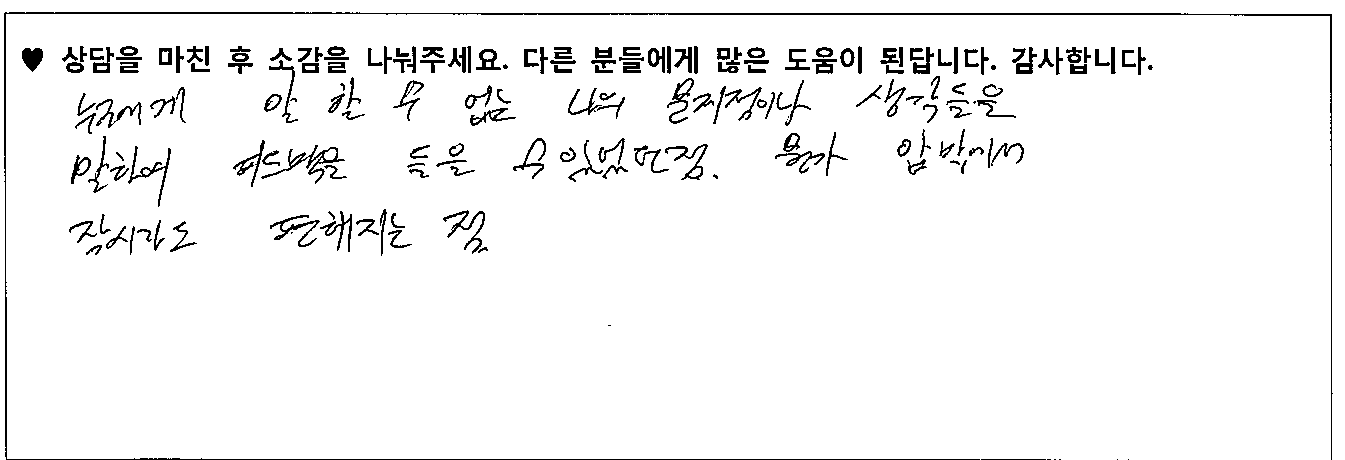 ♥ 상담을 마친 후 소감을 나눠주세요. 다른 분들에게 많은 도움이 된답니다. 감사합니다.
누구에게 말 할 수 없는 나의 문제점이나 생각들을
말하여 피드백을 들을 수 있었던점. 뭔가 압박에서
잠시라도 편해지는 점